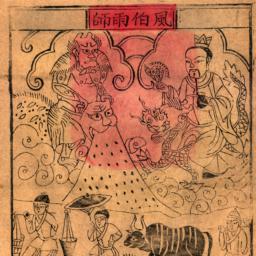 風伯雨師